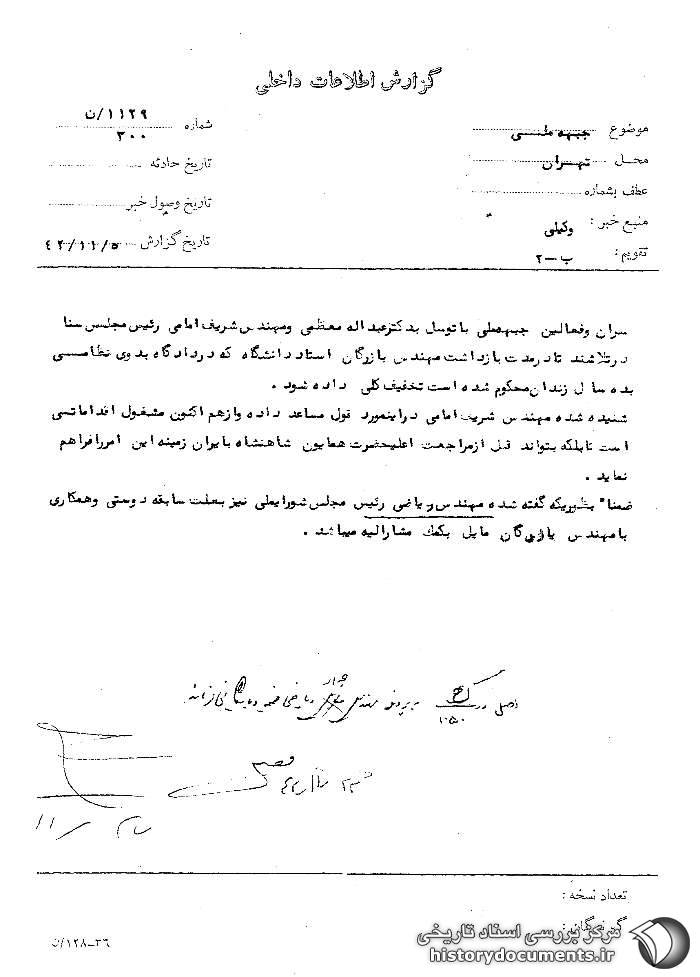 گزارش اطلاعات داخلی
موضوع جبهه ملی
شماره ۱۱۲۹/ن
۳۰۰
محل تهران
تاریخ حادثه
عطف بشماره
تاریخ وصول خبر
منبع خبر : وکیلی
تاریخ گزارش ۴۲/۱۱/۵
تقویم : ب-۲
سران وفعالین جبهه‌ملی با توسل بدکترعبداله معظمی ومهندس شریف امامی رئیس مجلس سنا
درتلاشند تا درمدت بازداشت مهندس بازرگان استاد دانشگاه که دردادگاه بدوی نظامی
بده سال زندان محکوم شده است تخفیف کلی داده شود .
شنیده شده مهندس شریف امامی دراینمورد قول مساعد داده وازهم اکنون مشغول اقداماتی
است تابلکه بتواند قبل ازمراجعت اعلیحضرت همایون شاهنشاه بایران زمینه این امررافراهم
نماید .
ضمنا" بطوریکه گفته شده مهندس ریاضی رئیس مجلس شورایملی نیز بعلت سابقه دوستی وهمکاری
بامهندس بازرگان مایل بکمک مشارالیه میباشد .
اصل در
۱۰۵۰
تعداد نسخه :
گیرندگان :
۳۶-۱۲۸/ن
مرکز بررسی اسناد تاریخی
historydocuments.ir